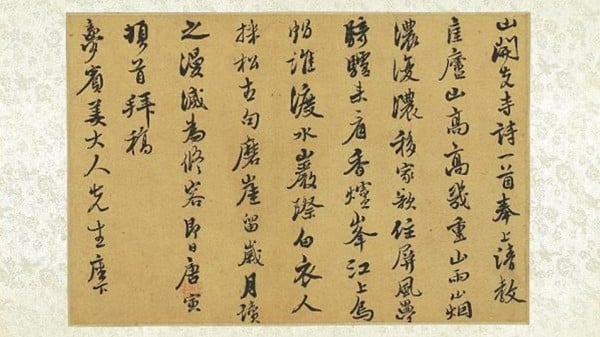 山開先寺詩一首奉上請教
匡廬山高高幾重山雨山烟
濃復濃移家欲住屏風疊
騎驢來看香爐峯江上烏
帽誰渡水巖際白衣人
採松古句磨崖留歲月讀
之漫滅為修容即日唐寅
頓首拜稿
夢賓美大人先生座下